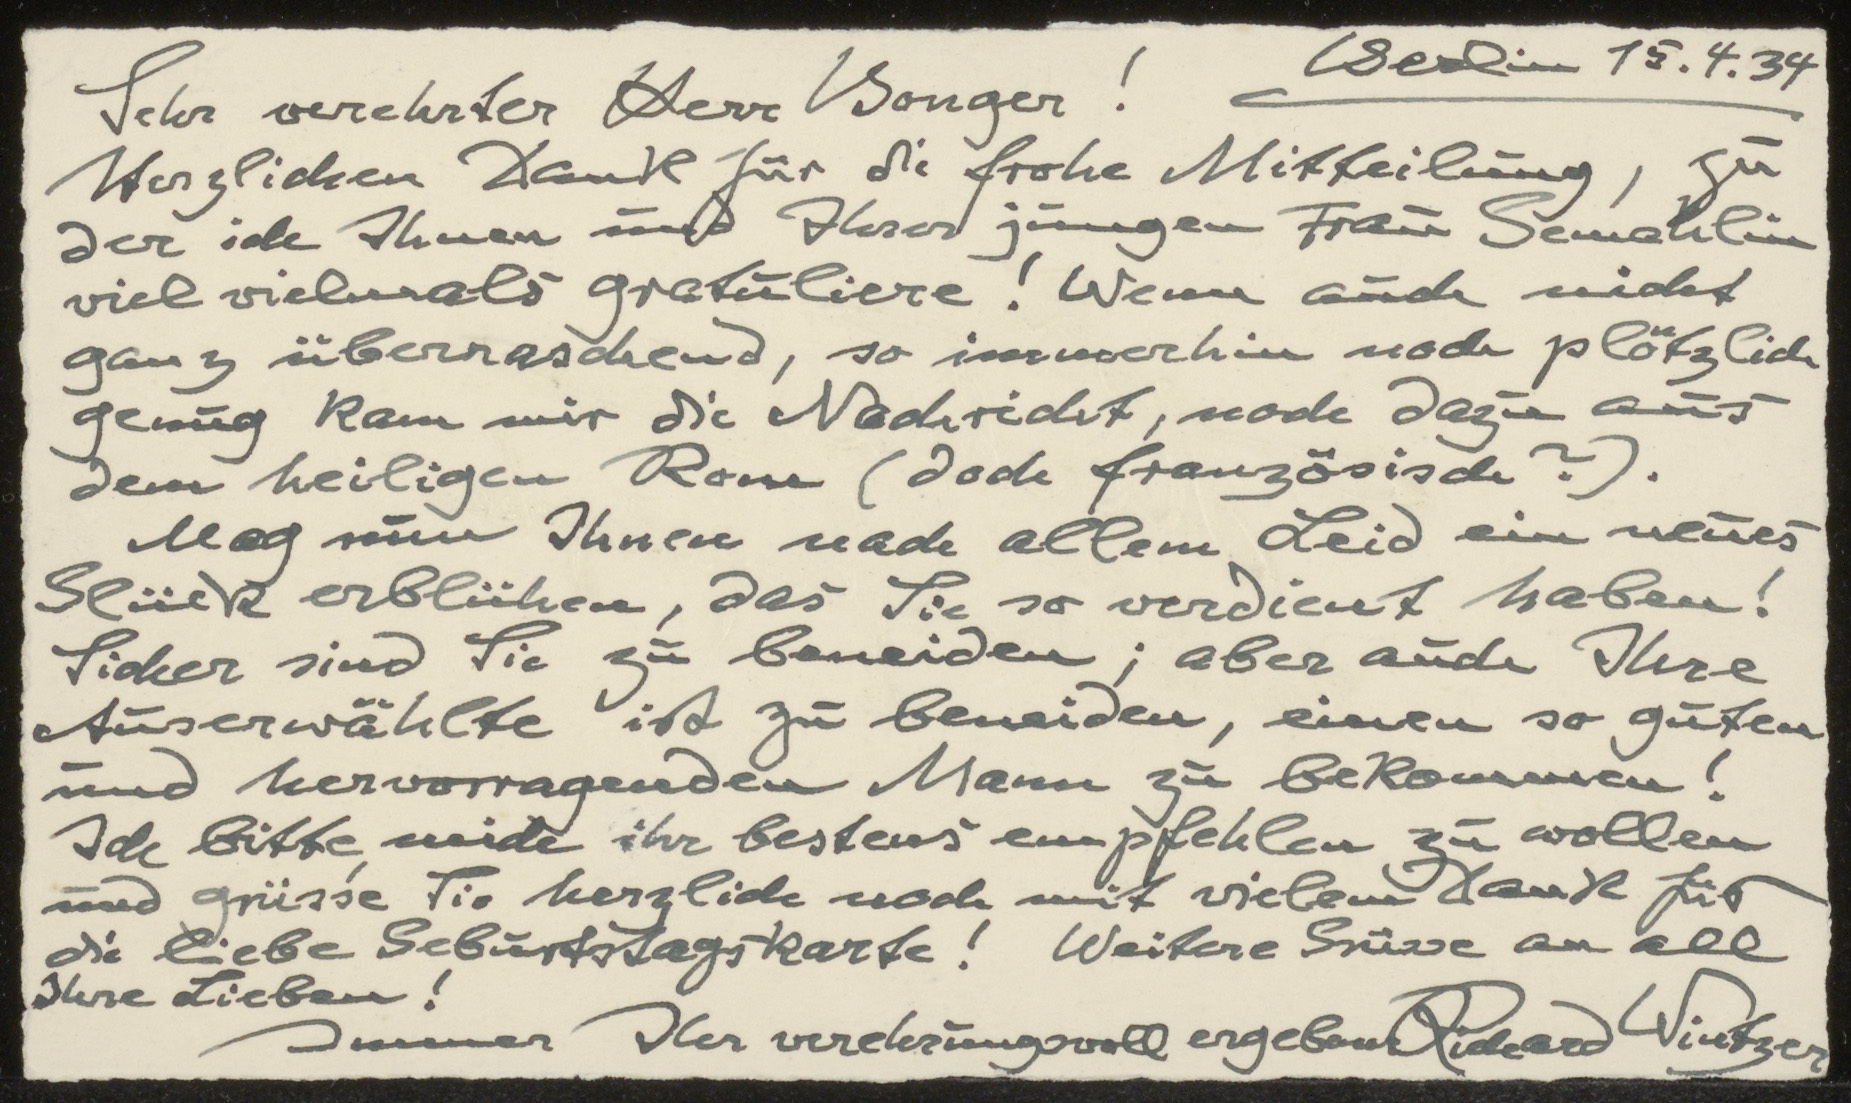 Berlin 15.4.34
Sehr verehrter Herr Bonger!
Herzlichen Dank für die frohe Mitteilung, zu
der ich Ihnen und Ihrer jungen Frau Gemahlin
viel vielmals gratuliere! Wenn auch nicht
ganz überraschend, so immerhin noch plötzlich
genug kam mir die Nachricht, noch dazu aus
dem heiligen Rom (doch französisch?).
Mag nun Ihnen nach allem Leid ein neues
Glück erblühen, das Sie so verdient haben!
Sicher sind Sie zu beneiden; aber auch Ihre
Auserwählte ist zu beneiden, einen so guten
und hervorragenden Mann zu bekommen!
Ich bitte, mich ihr bestens empfehlen zu wollen
und grüsse Sie herzlich noch mit vielem Dank für
die liebe Geburtstagskarte! Weitere Grüsse an all
Ihre Lieben!
Immer Ihr verehrungsvoll ergebener Richard Wintzer